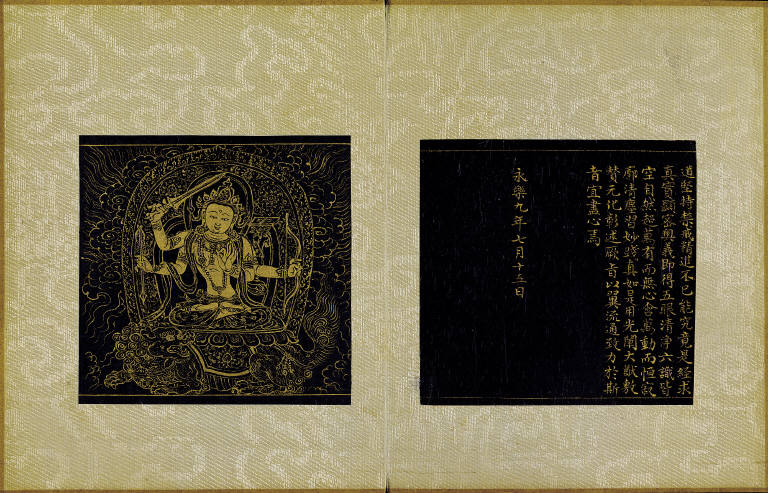 道堅持禁戒精進不已能究竟是經求
真實顯密奧義即得五眼清淨六識皆
空自然超萬有而無心會萬動而恒寂
廓清塵習妙踐真如是用光闡大猷敷
贊元化彰述厥旨以冀流通致力於斯
者宜盡心焉
永樂九年七月十五日